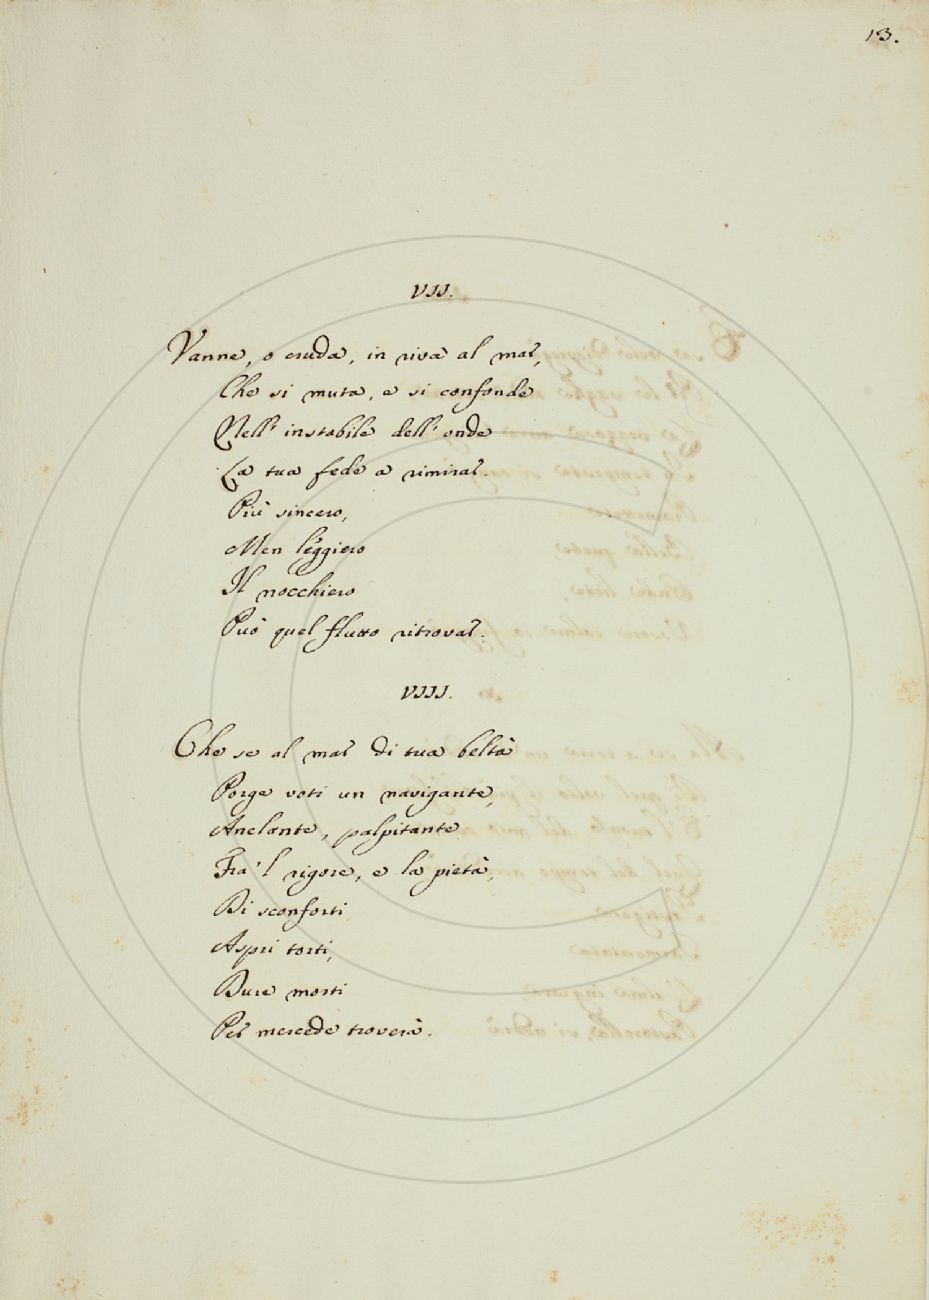 13.
VII.
Vanne, o cruda, in riva al mar,
Che si muta, e si confonde
Nell' instabile dell' onde
La tua fede a rimirar.
Più sincero,
Men leggiero
Il nocchiero
Può quel flutto ritrovar.
VIII.
Che se al mar di tua beltà
Porge voti un navigante,
Anelante, palpitante
Fra 'l rigore, e la pietà,
Di sconforti
Aspri torti,
Dure morti
Per mercede troverà.